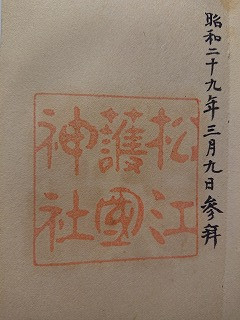 昭和二十九年三月九日参拜
松江
護國
神社